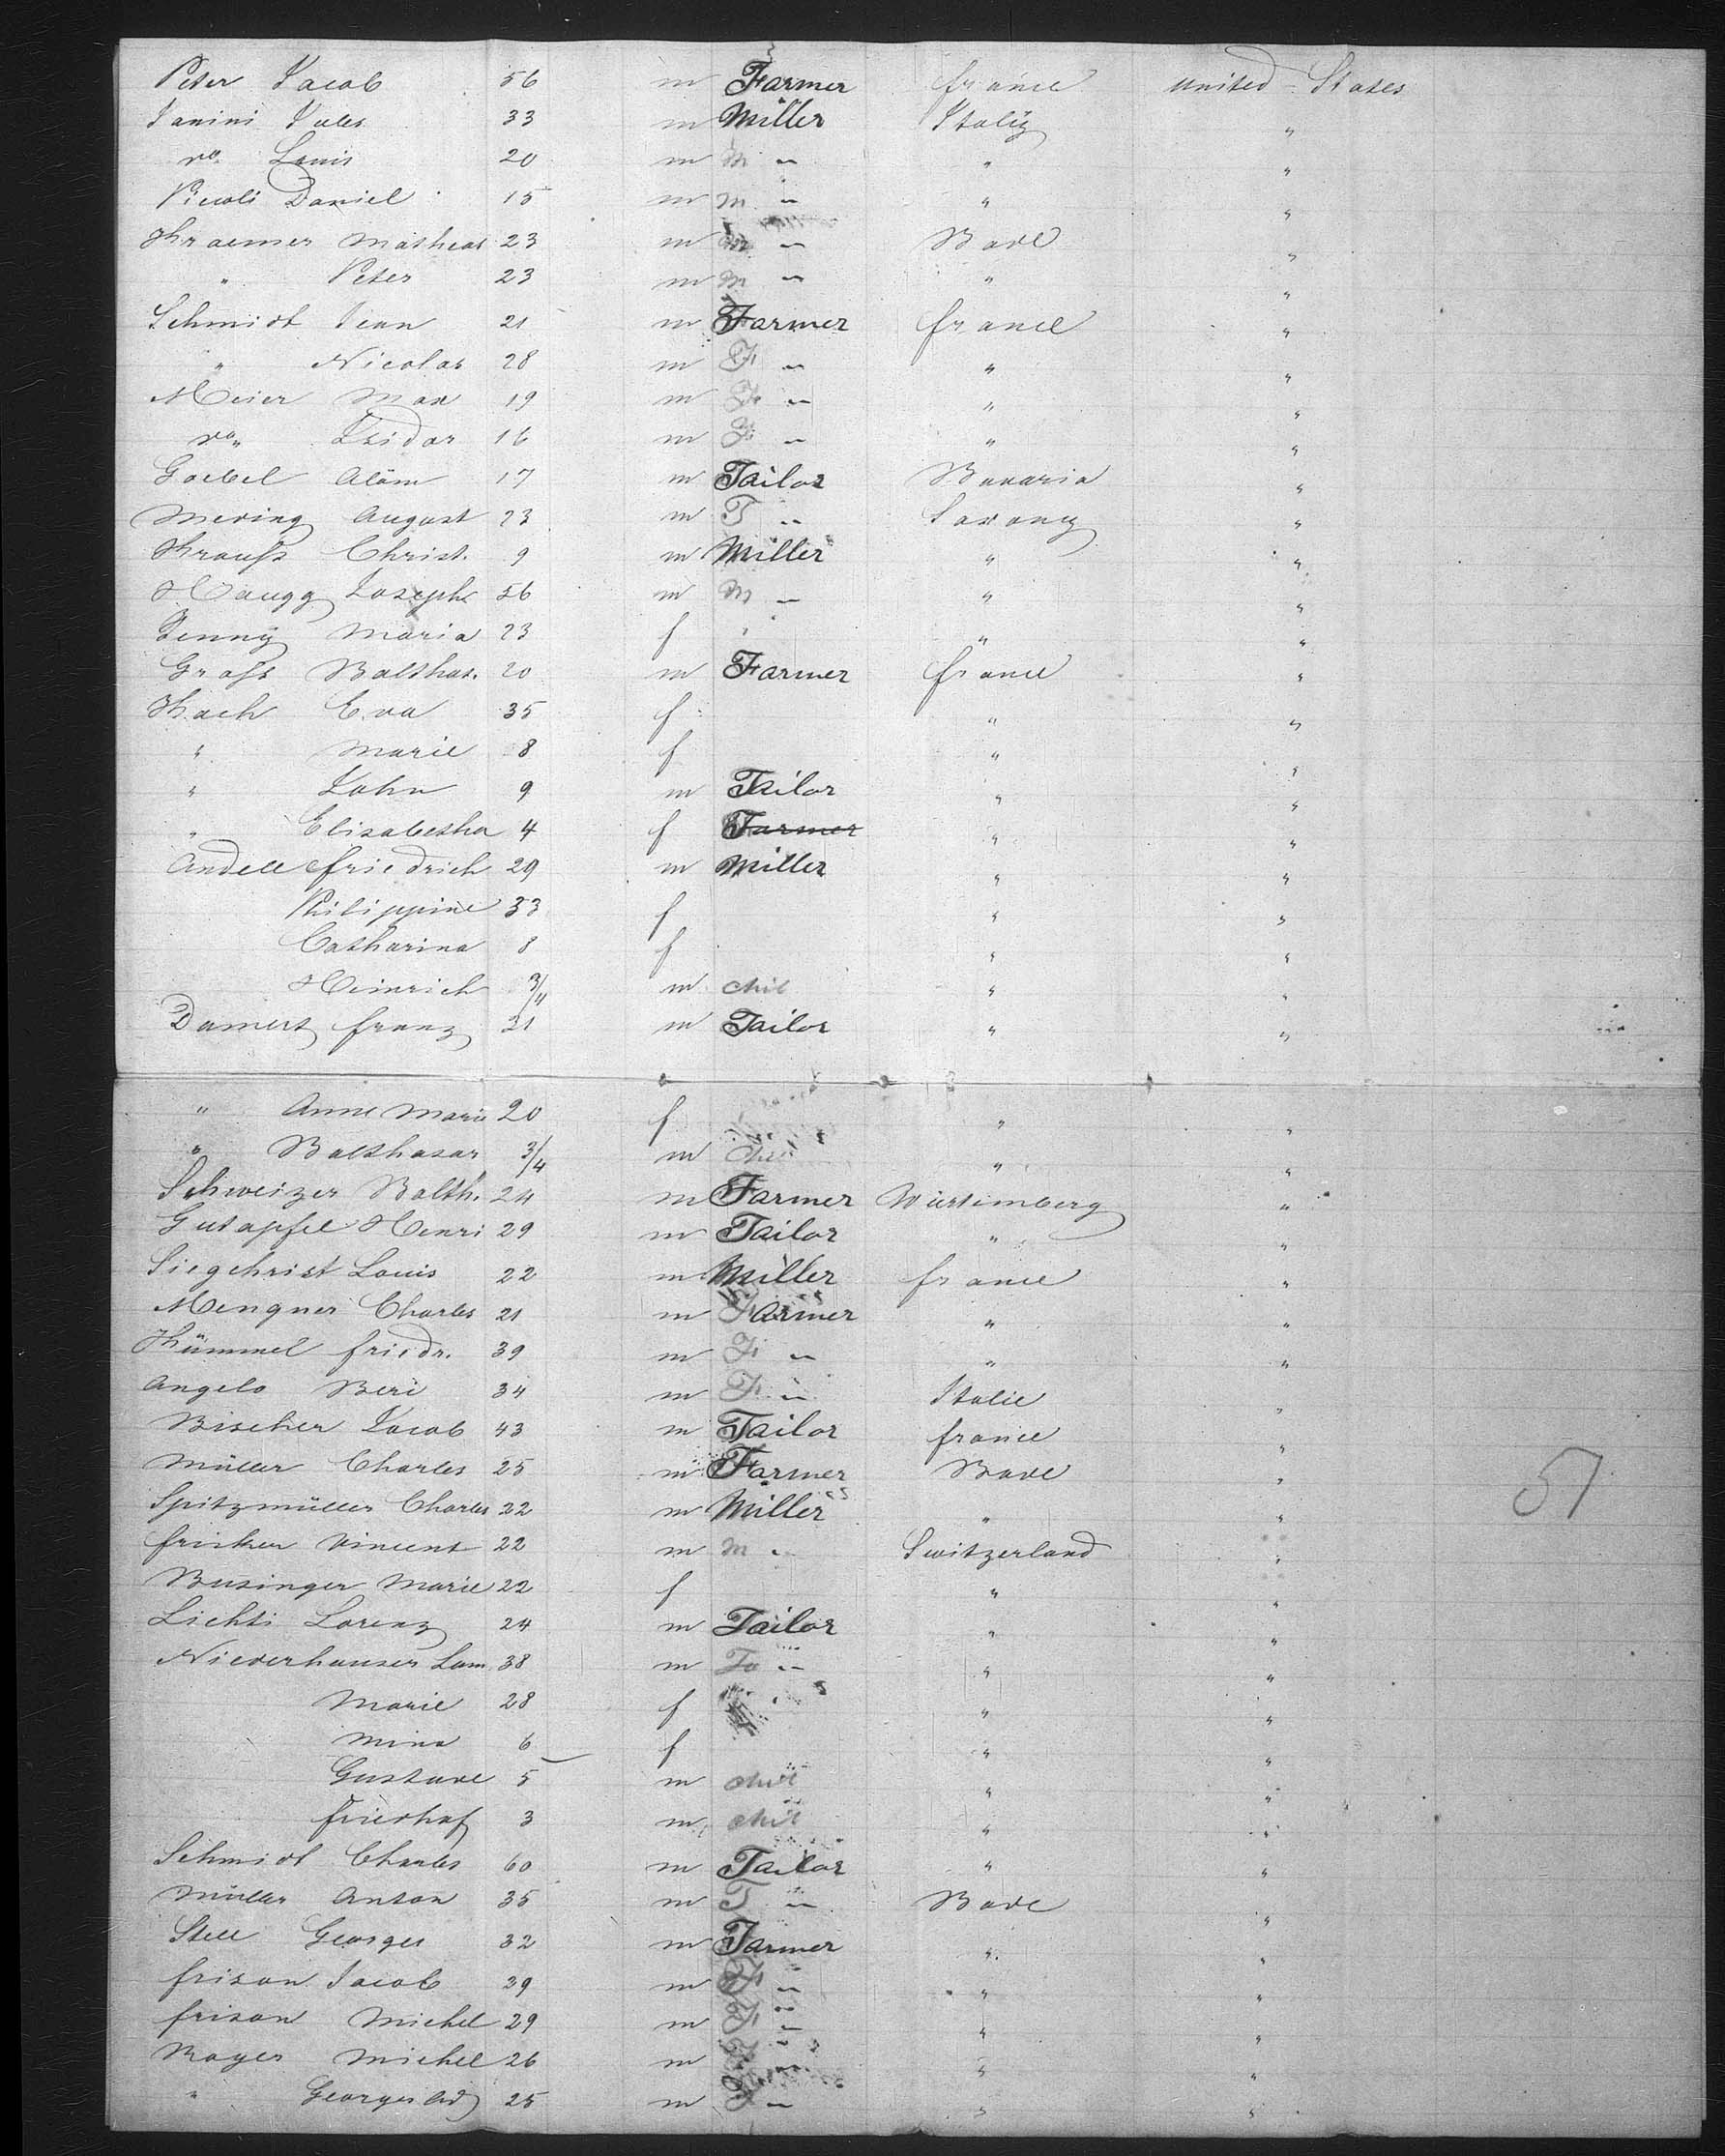 Peter Jacob 56 m Farmer france united States
Janini Jules 33 m Miller Italy "
do Louis 20 m M " " "
Picoli Daniel 15 m M " " "
Kraemer Matheas 23 m M " Bade "
" Peter 23 m M " " "
Schmidt Jean 21 m Farmer france "
" Nicolas 28 m F " " "
Meier Max 19 m F " " "
do " Isidor 16 m F " " "
Goebel Adam 17 m Tailor Bavaria "
Mering August 23 m T " Saxony "
Krauss Christ. 9 m Miller " "
Haugg Joseph 56 m M " " "
Jenny Maria 23 f " "
Grass Balthas. 20 m Farmer france "
Kach Eva 35 f " "
" Marie 8 f " "
" John 9 m Tailor " "
" Elisabetha 4 f Farmer " "
Andell friedrich 29 m Miller " "
Philippine 33 f " "
Catharina 8 f " "
Heinrich 3/4 m chil " "
Damert franz 31 m Tailor " "
" Anne Marie 20 f " "
" Balthasar 3/4 m chil " "
Schweizer Balth. 24 m Farmer Würtemberg "
Gutapfel Henri 29 m Tailor " "
Siegchrist Louis 22 m Miller france "
Mengner Charles 21 m Farmer " "
Kümmel friedr. 39 m F " " "
Angelo Beri 34 m F " Italie "
Bischer Jacob 43 m Tailor france "
Müller Charles 25 m Farmer Bade "
Spitzmüller Charles 22 m Miller " "
fricker Vincent 22 m M " Switzerland "
Businger Marie 22 f " "
Lichti Lorenz 24 m Tailor " "
Niederhauser Sam 38 m Ta " " "
Marie 28 f " "
Mina 6 f " "
Gustave 5 m chil " "
3 m chil " "
Schmidt Charles 60 m Tailor " "
Müller Anton 35 m T " Bade "
Stell Georges 32 m Farmer " "
frison Jacob 39 m F " " "
frison Michel 29 m F " " "
Royer Michel 26 m F " " "
" Georges 25 m F " " "
51